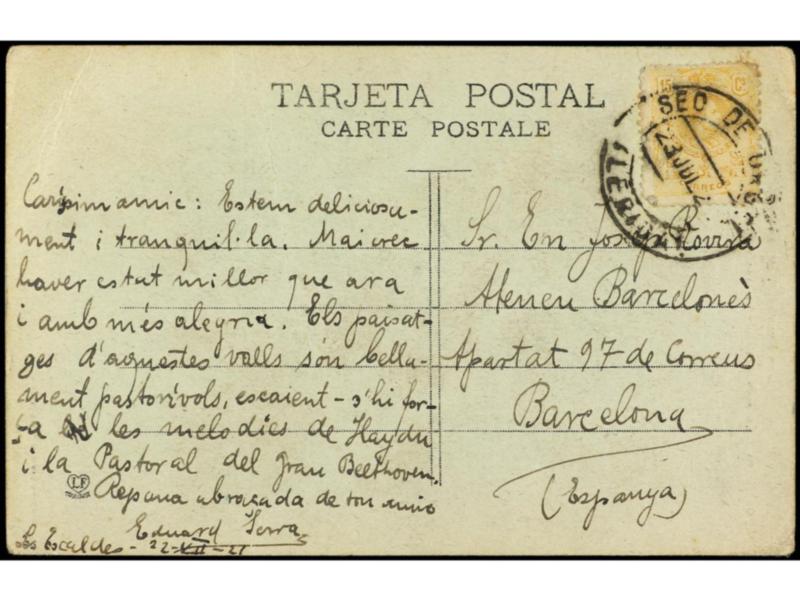 TARJETA POSTAL
CARTE POSTALE
15 Cs
SEO DE URGEL
23 JUL
Caríssim amic: Estem deliciosa-
ment i tranquil·la. Maicrec
haver estat millor que ara
i amb més alegria. Els paisat-
ges d'aquestes valls són bella-
ment pastorívols, escaient-s'hi for-
ça les melodies de Haydn
i la Pastoral del gran Beethoven.
LF
abraçada de ton amic
Eduard Serra
Les Escaldes - 22-VII-21
Sr. En Josep Rovira
Ateneu Barcelonès
Apartat 97 de Correus
Barcelona
(Espanya)